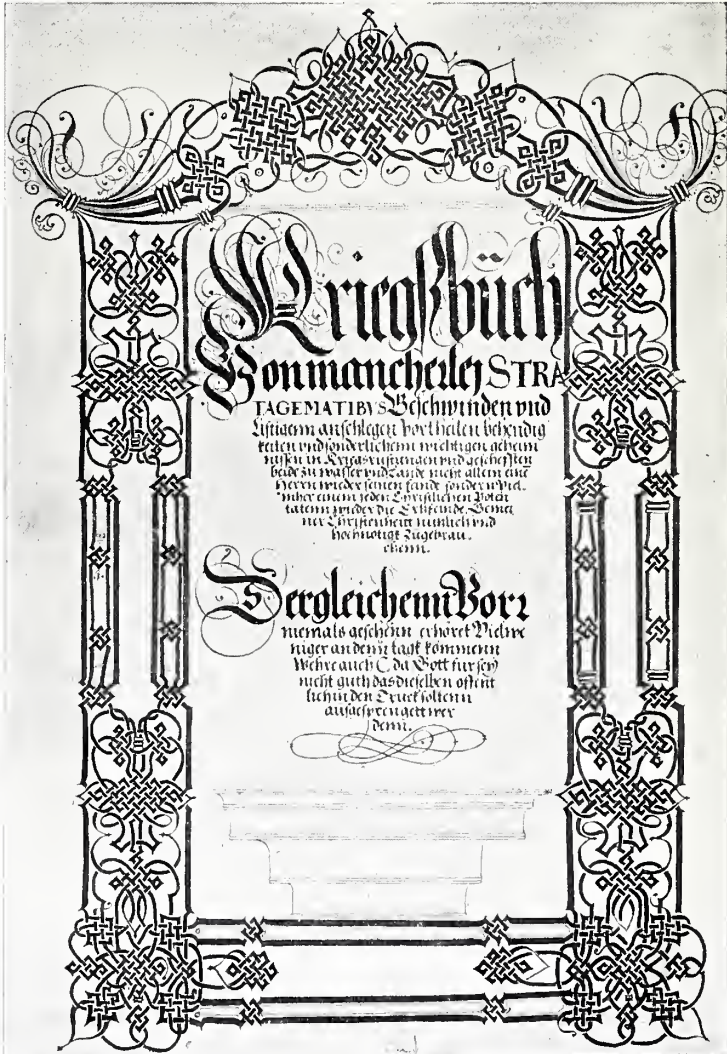 Kriegßbüch
Von mancherley STRA
TAGEMATIBVS Geschwinden vnd
Listigenn anschlegen Vortheilen behendig
keiten vnd sonderlichenn wichtigen geheim
nissen in Kriegsrustungen vnd gescheften
beide zu wasser vnd Lande nicht allein eine
Herrn wieder seinen fande sonder
einem jeden Christlichen Poten
tatenn wieder die Erbfeinde Gemei
ner Christenheit nutzlich vnd
hochnötigk Zugebrau
chenn.
Dergleichenn Vorr
niemals gesehenn erhöret Vielwe
niger an denn tagk kommenn
Wehre auch C da Gott fur sey
nicht guth das dieselben offent
lich in den Druck soltenn
ausgesprengett wer
denn.